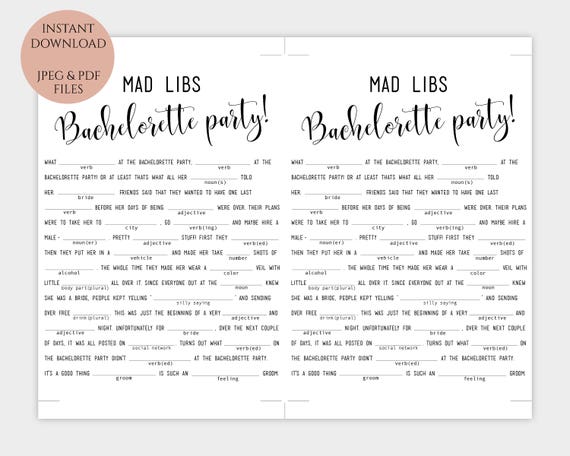 INSTANT
DOWNLOAD
JPEG & PDF
FILES
MAD LIBS
Bachelorette party!
WHAT ____ AT THE BACHELORETTE PARTY, ____ AT THE
verb verb
BACHELORETTE PARTY! OR AT LEAST THATS WHAT ALL HER ____ TOLD
noun(s)
HER. ____ FRIENDS SAID THAT THEY WANTED TO HAVE ONE LAST
bride
____ BEFORE HER DAYS OF BEING ____ WERE OVER. THEIR PLANS
verb adjective
WERE TO TAKE HER TO ____ , GO ____ AND MAYBE HIRE A
city verb(ing)
MALE- ____ . PRETTY ____ STUFF! FIRST THEY ____
noun(er) adjective verb(ed)
THEN THEY PUT HER IN A ____ AND MADE HER TAKE ____ SHOTS OF
vehicle number
____ . THE WHOLE TIME THEY MADE HER WEAR A ____ VEIL WITH
alcohol color
LITTLE ____ ALL OVER IT. SINCE EVERYONE OUT AT THE ____ KNEW
body part(plural) noun
SHE WAS A BRIDE, PEOPLE KEPT YELLING " ____ " AND SENDING
silly saying
OVER FREE ____ . THIS WAS JUST THE BEGINNING OF A VERY ____ AND
drink(plural) adjective
____ NIGHT. UNFORTUNATELY FOR ____ , OVER THE NEXT COUPLE
adjective bride
OF DAYS, IT WAS ALL POSTED ON ____ . TURNS OUT WHAT ____ ON
social network verb(ed)
THE BACHELORETTE PARTY DIDN'T ____ AT THE BACHELORETTE PARTY.
verb(ed)
IT'S A GOOD THING ____ IS SUCH AN ____ GROOM.
groom feeling
MAD LIBS
Bachelorette party!
WHAT ____ AT THE BACHELORETTE PARTY, ____ AT THE
verb verb
BACHELORETTE PARTY! OR AT LEAST THATS WHAT ALL HER ____ TOLD
noun(s)
HER. ____ FRIENDS SAID THAT THEY WANTED TO HAVE ONE LAST
bride
____ BEFORE HER DAYS OF BEING ____ WERE OVER. THEIR PLANS
verb adjective
WERE TO TAKE HER TO ____ , GO ____ AND MAYBE HIRE A
city verb(ing)
MALE- ____ . PRETTY ____ STUFF! FIRST THEY ____
noun(er) adjective verb(ed)
THEN THEY PUT HER IN A ____ AND MADE HER TAKE ____ SHOTS OF
vehicle number
____ . THE WHOLE TIME THEY MADE HER WEAR A ____ VEIL WITH
alcohol color
LITTLE ____ ALL OVER IT. SINCE EVERYONE OUT AT THE ____ KNEW
body part(plural) noun
SHE WAS A BRIDE, PEOPLE KEPT YELLING " ____ " AND SENDING
silly saying
OVER FREE ____ . THIS WAS JUST THE BEGINNING OF A VERY ____ AND
drink(plural) adjective
____ NIGHT. UNFORTUNATELY FOR ____ , OVER THE NEXT COUPLE
adjective bride
OF DAYS, IT WAS ALL POSTED ON ____ . TURNS OUT WHAT ____ ON
social network verb(ed)
THE BACHELORETTE PARTY DIDN'T ____ AT THE BACHELORETTE PARTY.
verb(ed)
IT'S A GOOD THING ____ IS SUCH AN ____ GROOM.
groom feeling